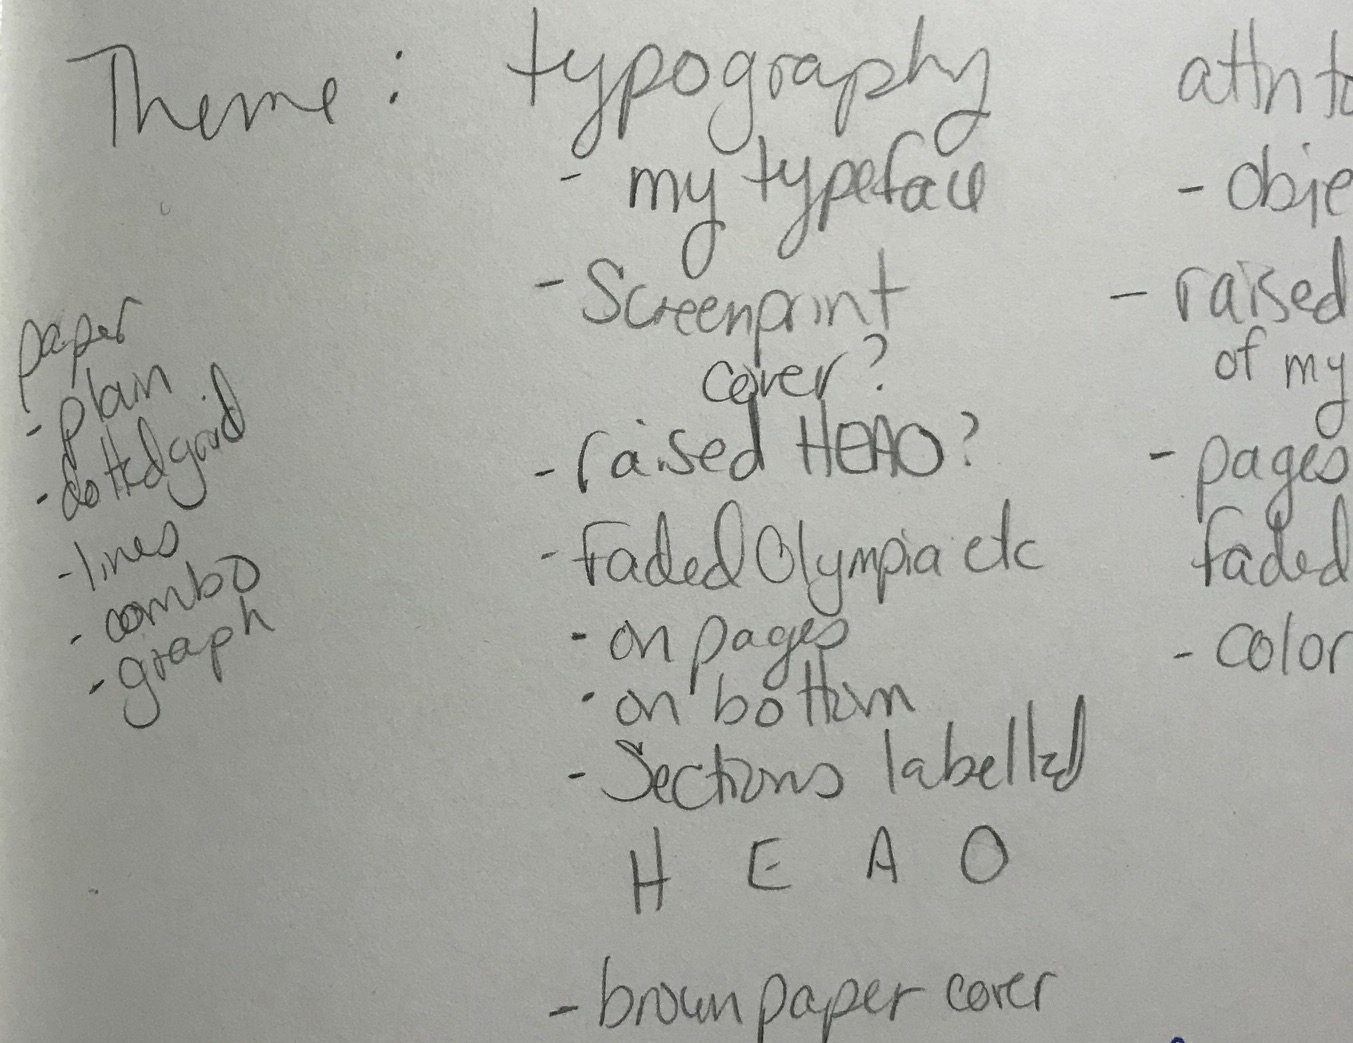 Theme: typography
- my typeface
- Screenprint
cover?
- raised HEAO?
- Faded Olympia etc
- on pages
- on bottom
- Sections labelled
H E A O
- brown paper cover
paper
- plain
- dotted grid
- lines
- combo
- graph
attn to
- obje
- raised
of my
- pages
faded
- color